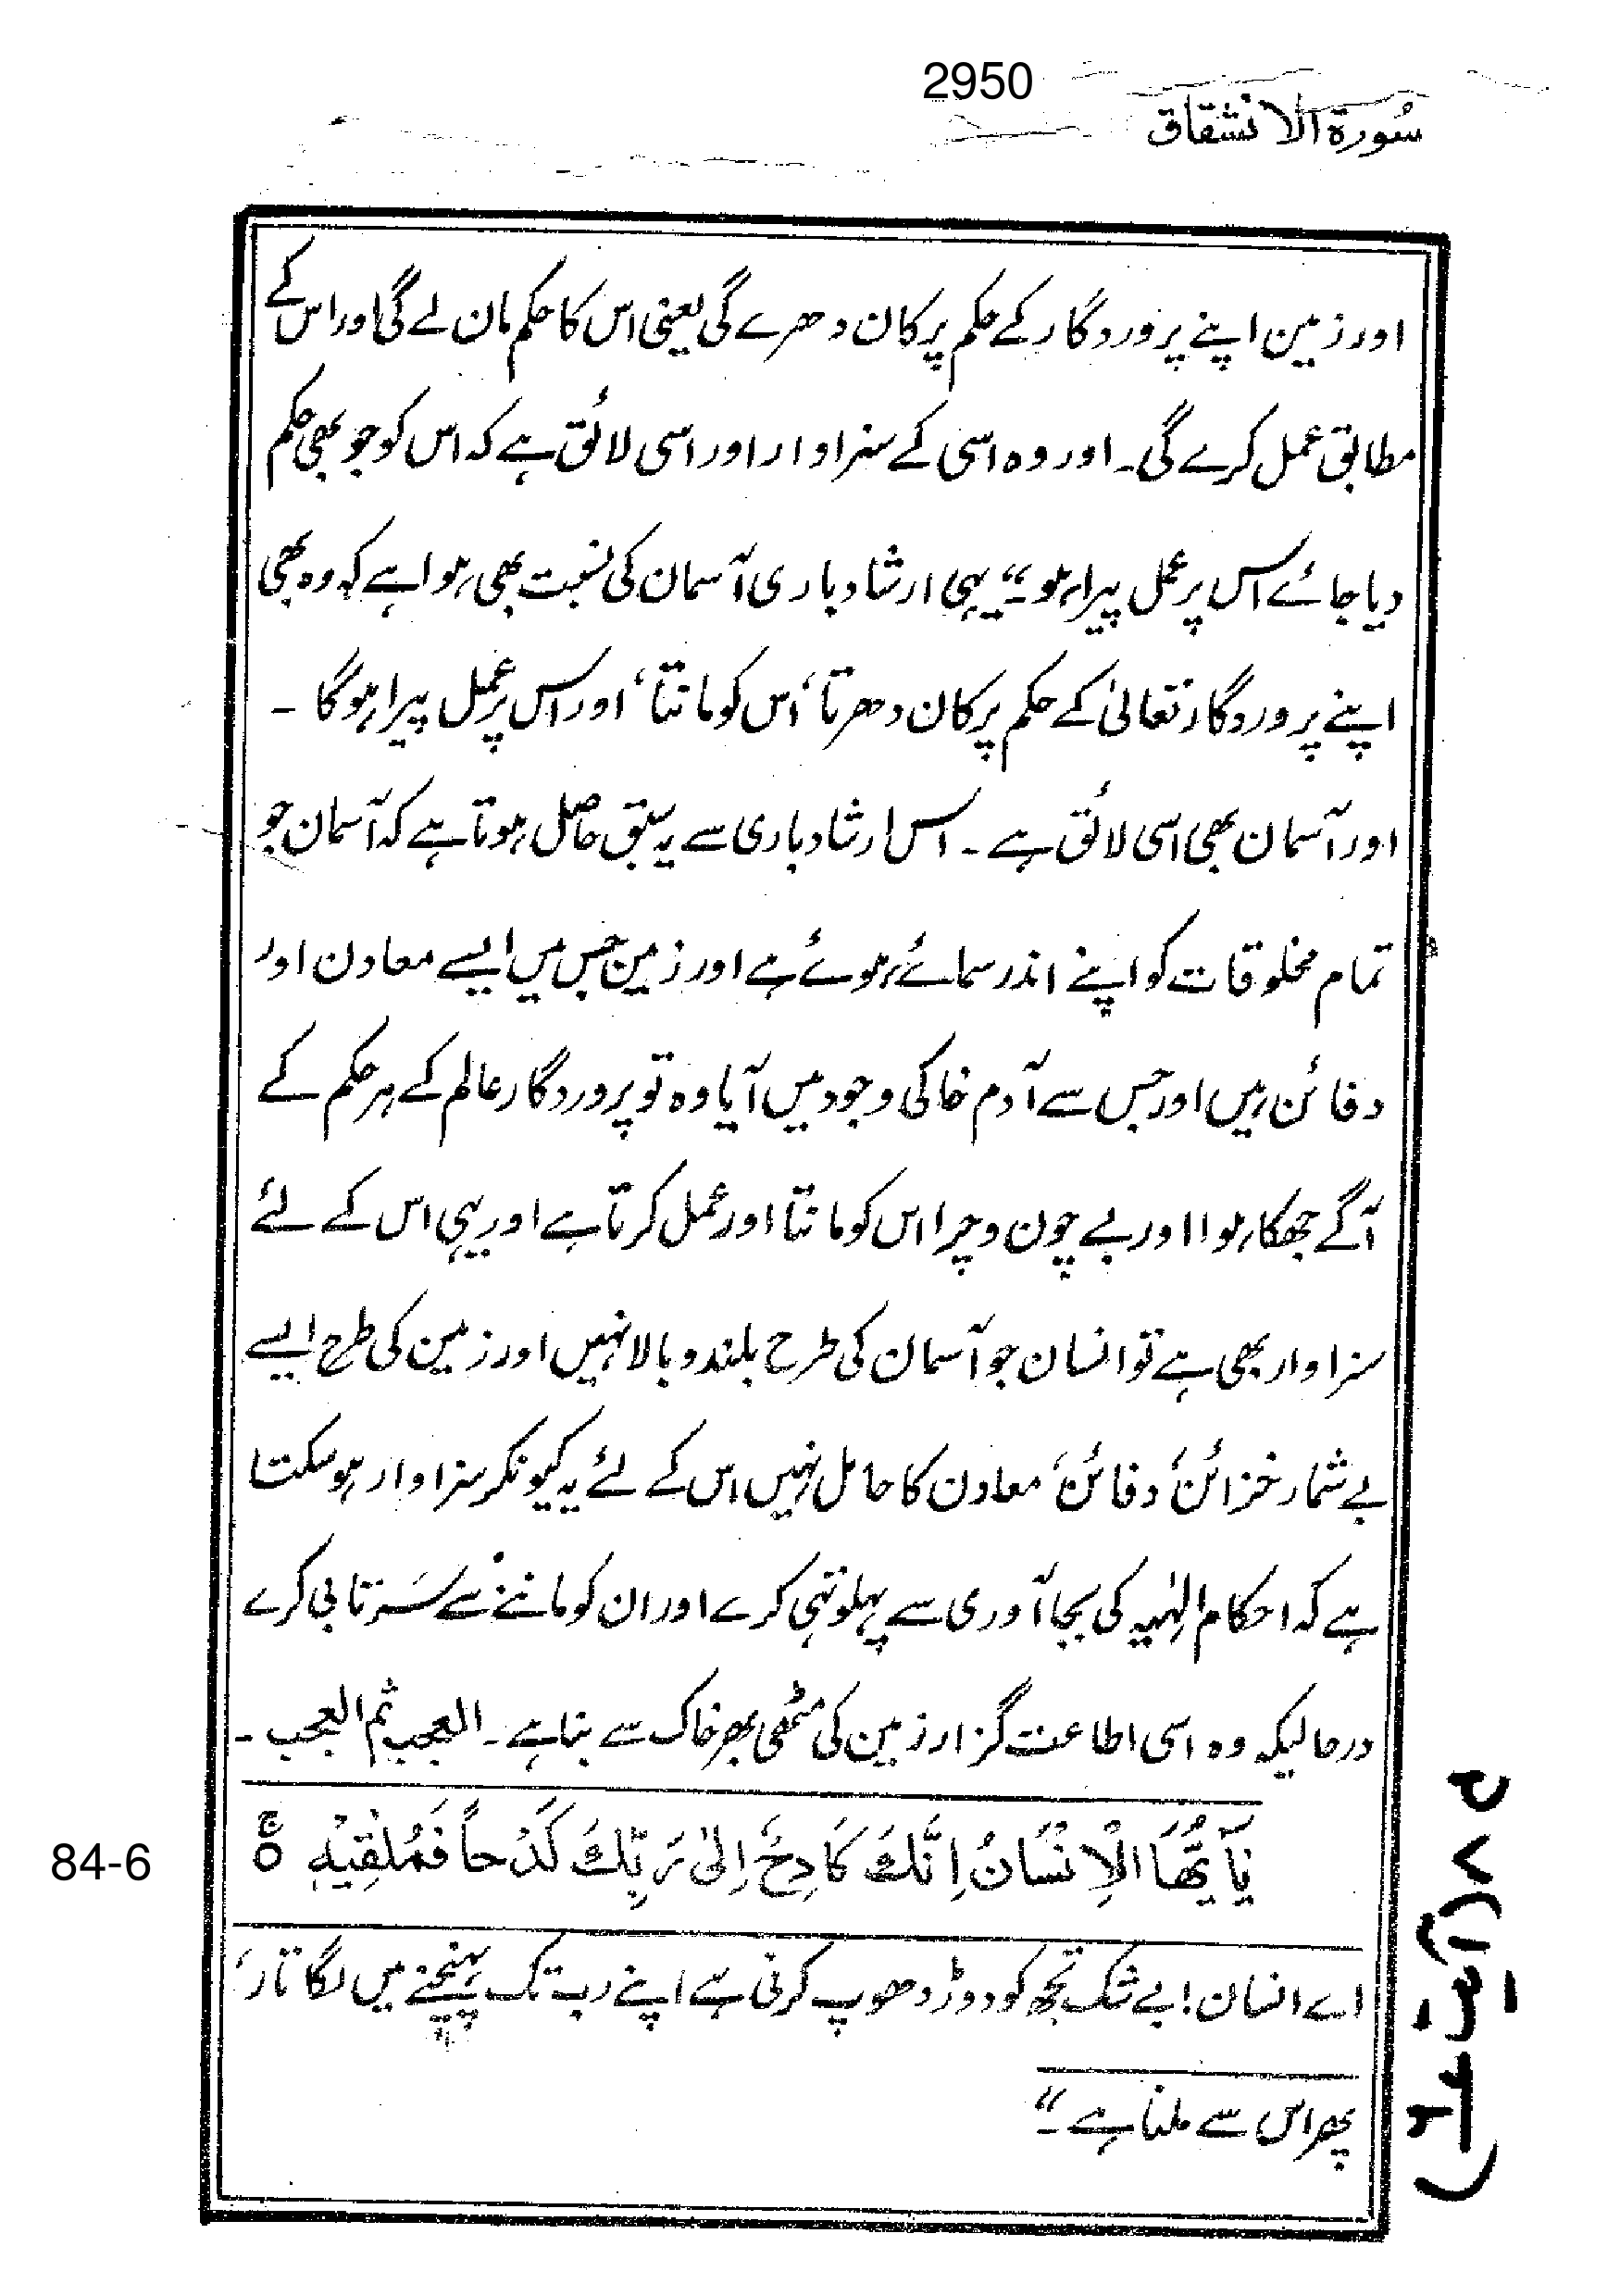 2950
سُورة الانشقاق
اور زمین اپنے پروردگار کے حکم پر کان دھرے گی یعنی اس کا حکم مان لے گی اور اس کے
مطابق عمل کرے گی۔ اور وہ اسی کے سزاوار اور اسی لائق ہے کہ اس کو جو بھی حکم
دیا جائے اس پر عمل پیرا ہو۔“ یہی ارشاد باری آسمان کی نسبت بھی ہوا ہے کہ وہ بھی
اپنے پروردگار تعالیٰ کے حکم پر کان دھرتا، اس کو مانتا، اور اس پر عمل پیرا ہوگا ۔
اور آسمان بھی اسی لائق ہے ۔ اس ارشاد باری سے یہ سبق حاصل ہوتا ہے کہ آسمان جو
تمام مخلوقات کو اپنے اندر سمائے ہوئے ہے اور زمین جس میں ایسے معادن اور
دفائن ہیں اور جس سے آدم خاکی وجود میں آیا وہ تو پروردگار عالم کے ہر حکم کے
آگے جھکا ہوا اور بے چون و چرا اس کو مانتا اور عمل کرتا ہے اور یہی اس کے لئے
سزاوار بھی ہے تو انسان جو آسمان کی طرح بلند و بالا نہیں اور زمین کی طرح ایسے
بے شمار خزائن، دفائن، معادن کا حامل نہیں اس کے لئے یہ کیونکر سزاوار ہو سکتا
ہے کہ احکام الٰہیہ کی بجا آوری سے پہلو تہی کرے اور ان کو ماننے سے سَرتابی کرے
درحالیکہ وہ اسی اطاعت گزار زمین کی مٹھی بھر خاک سے بنا ہے ۔ العجب ثم العجب ۔
84-6
يٰٓاَيُّهَا الْاِنْسَانُ اِنَّكَ كَادِحٌ اِلٰى رَبِّكَ كَدْحاً فَمُلٰقِيْهِ ۝ۚ
اے انسان! بے شک تجھ کو دوڑ دھوپ کرنی ہے اپنے رب تک پہنچنے میں لگاتار،
پھر اس سے ملنا ہے ۔“